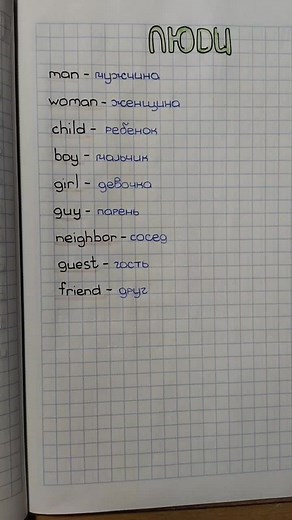 ЛЮДИ
man - мужчина
woman - женщина
child - ребёнок
boy - мальчик
girl - девочка
guy - парень
neighbor - сосед
guest - гость
friend - друг